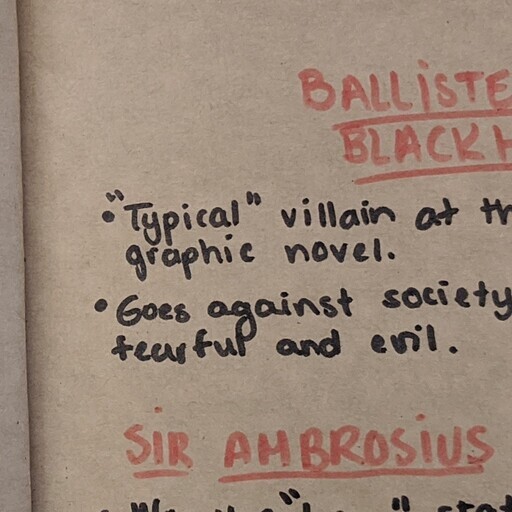 BALLISTE
BLACK H
• "Typical" villain at th
graphic novel.
• Goes against society
fearful and evil.
SIR AMBROSIUS